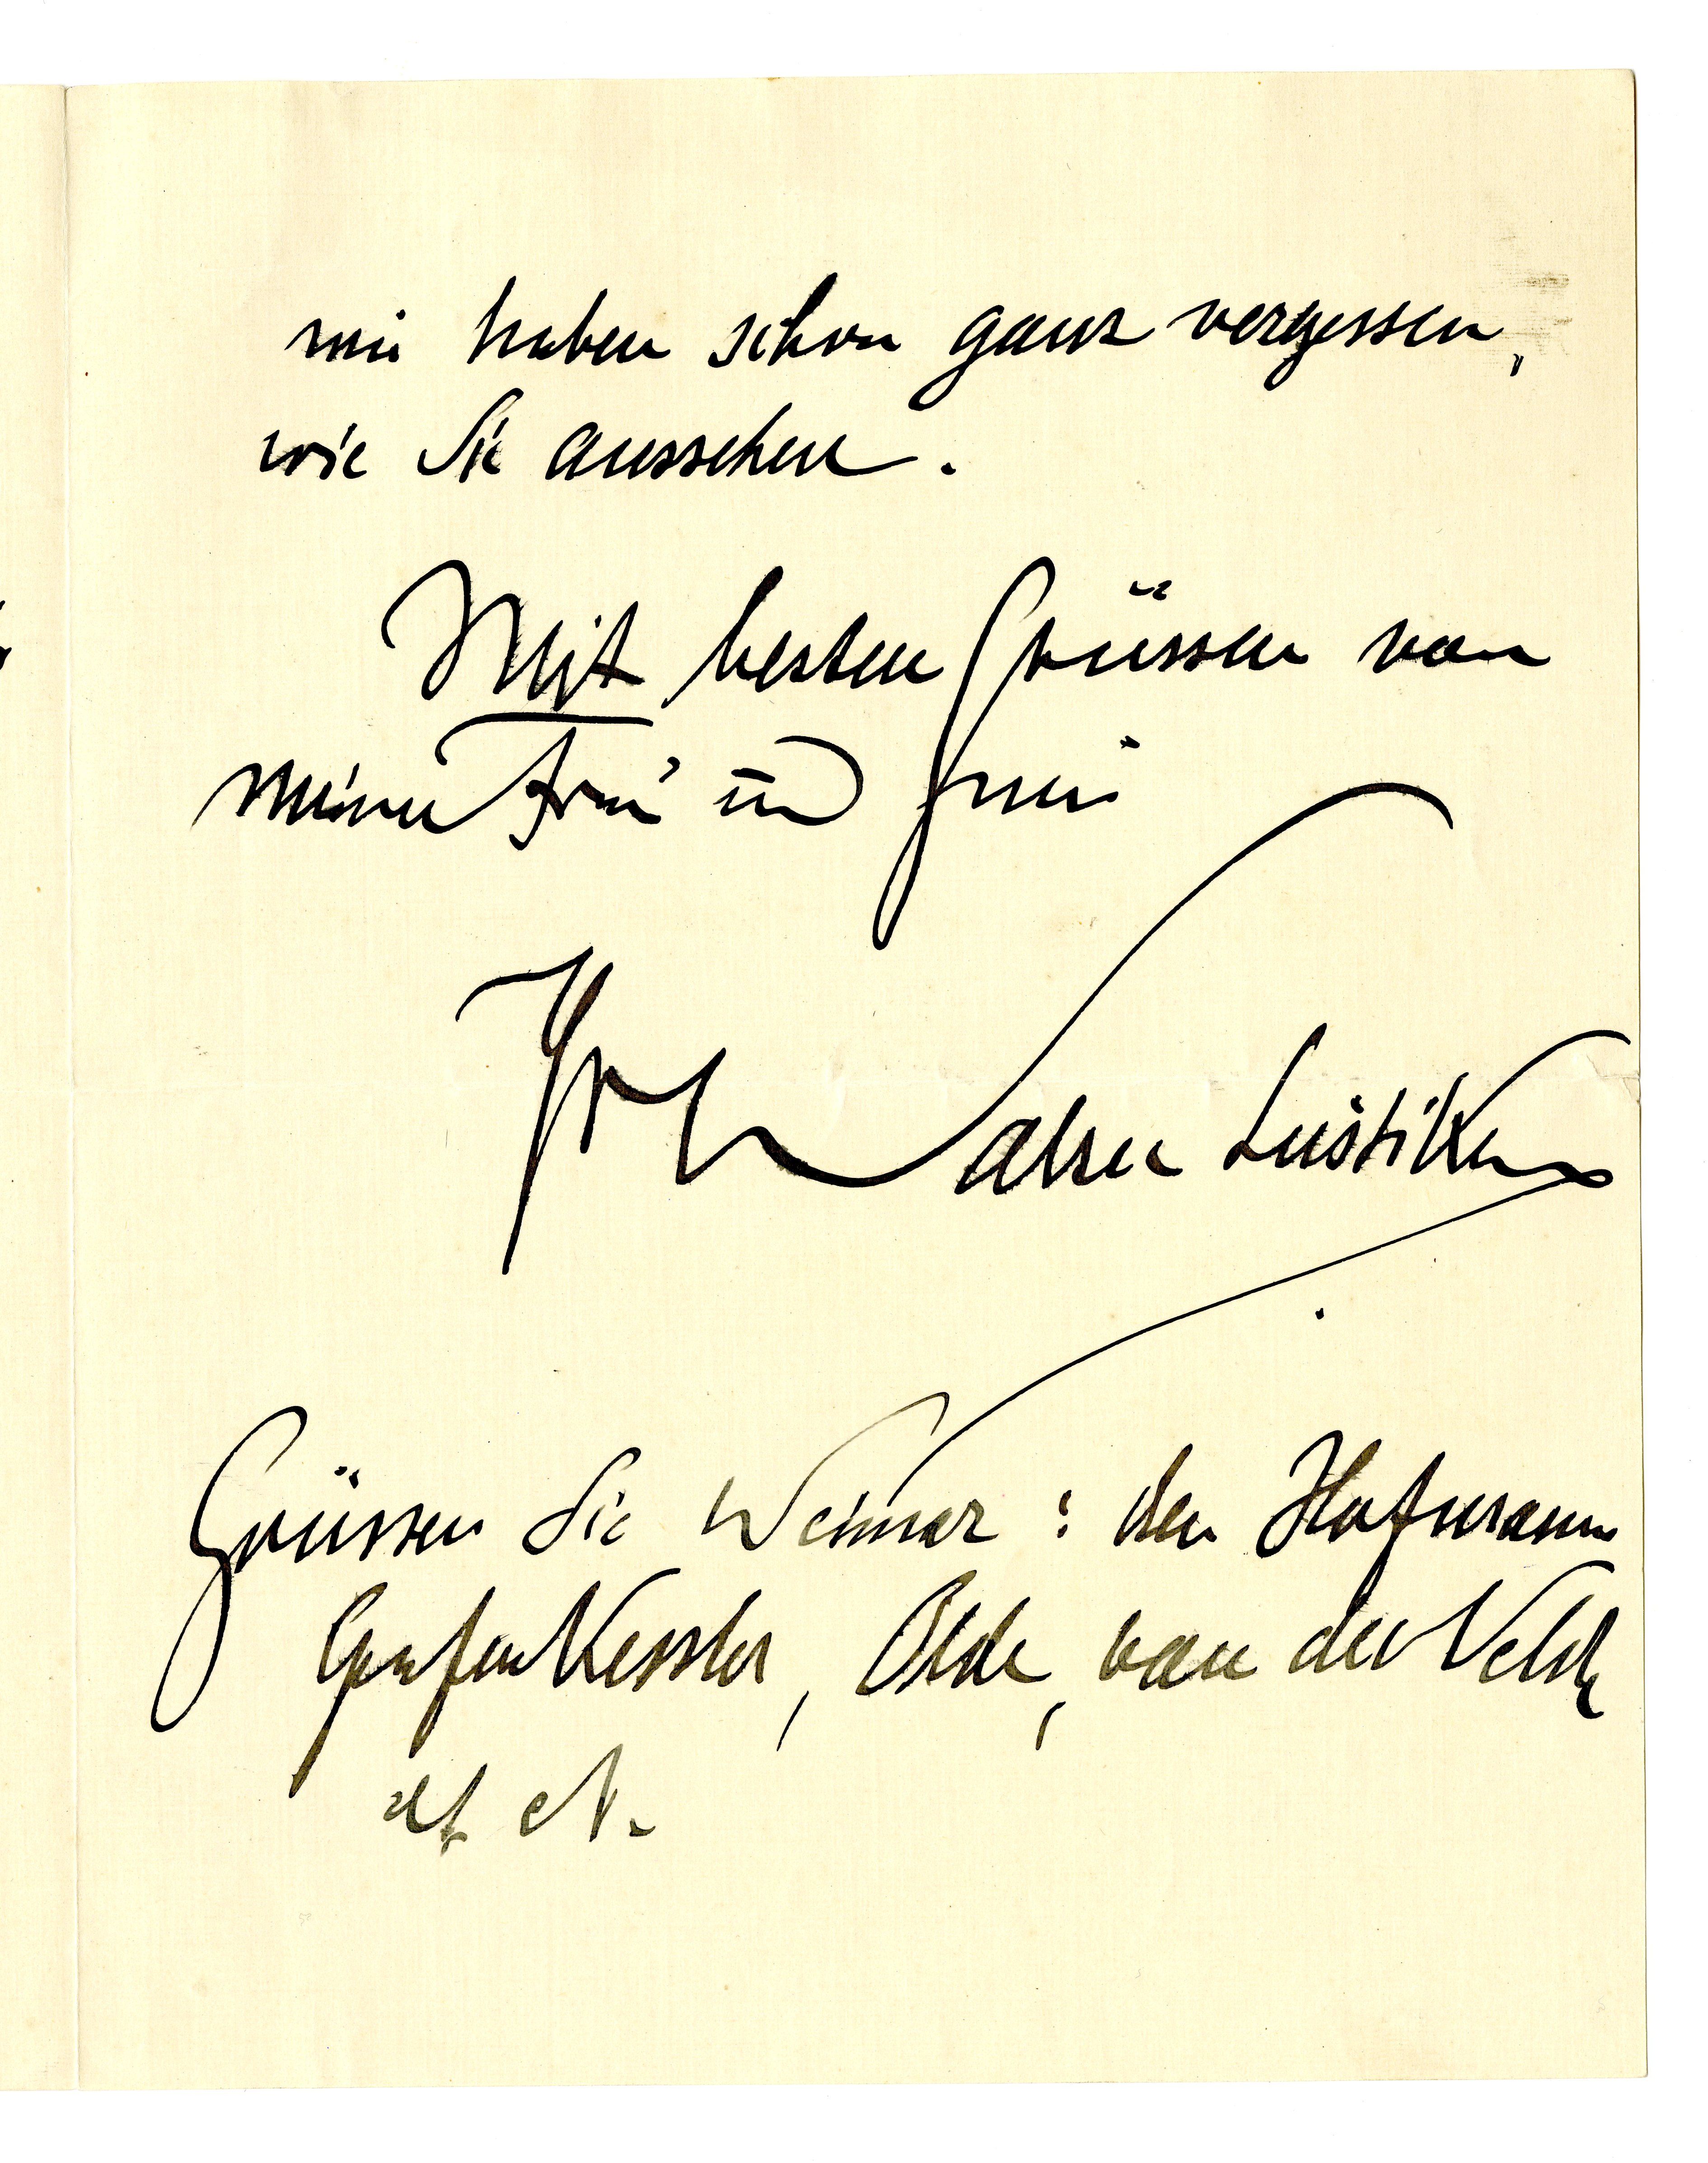 wir haben schon ganz vergessen,
wie Sie aussehen.
Mit besten Grüssen von
meiner Frau und mir
Ihr Walter Leistikow
Grüssen Sie Weimar: den Hofmann
Grafen Kessler, Olde, van der Velde
etc.